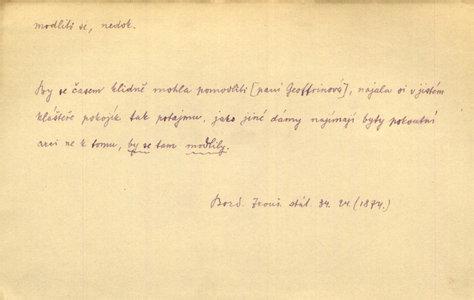 modliti se, nedok.
By se časem klidně mohla pomodliti [paní Geoffrinová], najala si v jistém
klášteře pokojík tak potajmu, jako jiné dámy najímají byty pokoutní
arci ne k tomu, by se tam modlily.
Bozd. Zrcad. stál. 34. 24. (1874.)